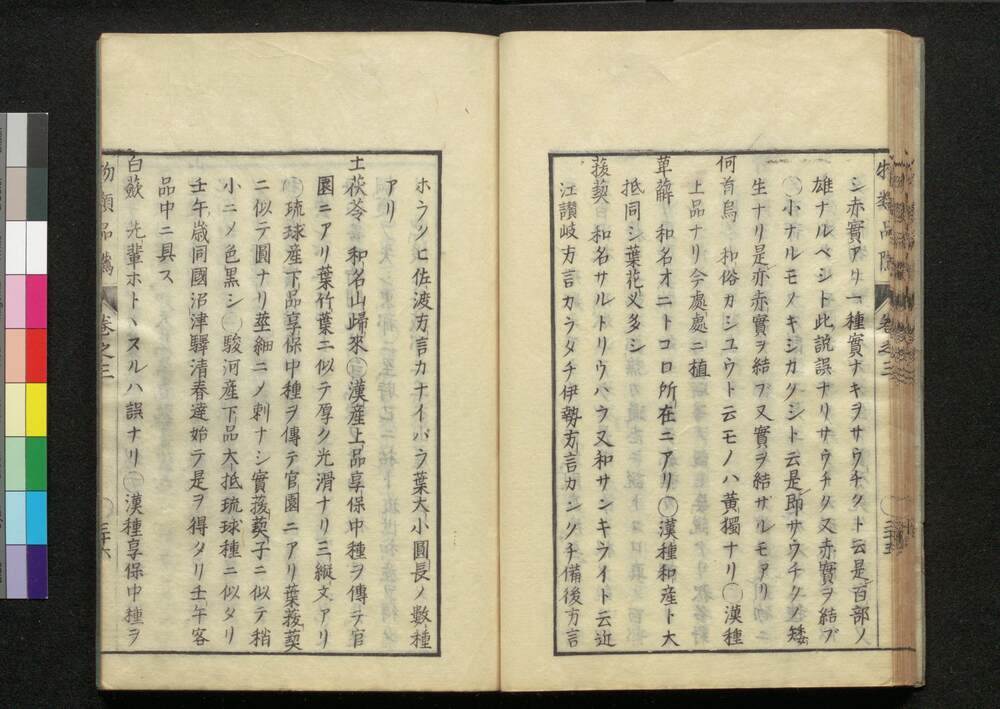 物類品隲 巻之三 三十五
シ赤實アリ一種實ナキヲサウチクト云是百部ノ
雄ナルベシト此說誤ナリサウチク又赤實ヲ結ブ
小ナルモノキジカクシト云是即サウチクノ矮
生ナリ是亦赤實ヲ結フ又實ヲ結ザルモアリ
何首烏 和俗カシユウト云モノハ黃獨ナリ○漢種
上品ナリ今處處ニ植
萆薢 和名オニトコロ所在ニアリ○漢種和産ト大
抵同シ葉花乂多シ
菝葜 和名サルトリウバラ又和サンキライト云近
江讃岐方言カラタチ伊勢方言カンクチ備後方言
ホウラクヒ佐渡方言カナイバラ葉大小圓長ノ數種
アリ
土茯苓 和名山歸來○漢産上品享保中種ヲ傳テ官
園ニアリ葉竹葉ニ似テ厚ク光滑ナリ三縱文アリ
○琉球産下品享保中種ヲ傳テ官園ニアリ葉菝葜
ニ似テ圓ナリ莖細ニメ刺ナシ實菝葜子ニ似テ稍
小ニメ色黑シ○駿河産下品大抵琉球種ニ似タリ
壬午歳同國沼津驛清春達始テ是ヲ得タリ壬午客
品中ニ具ス
白蘞 先輩ホトヽスルハ誤ナリ○漢種享保中種ヲ
物類品隲 巻之三 三十六